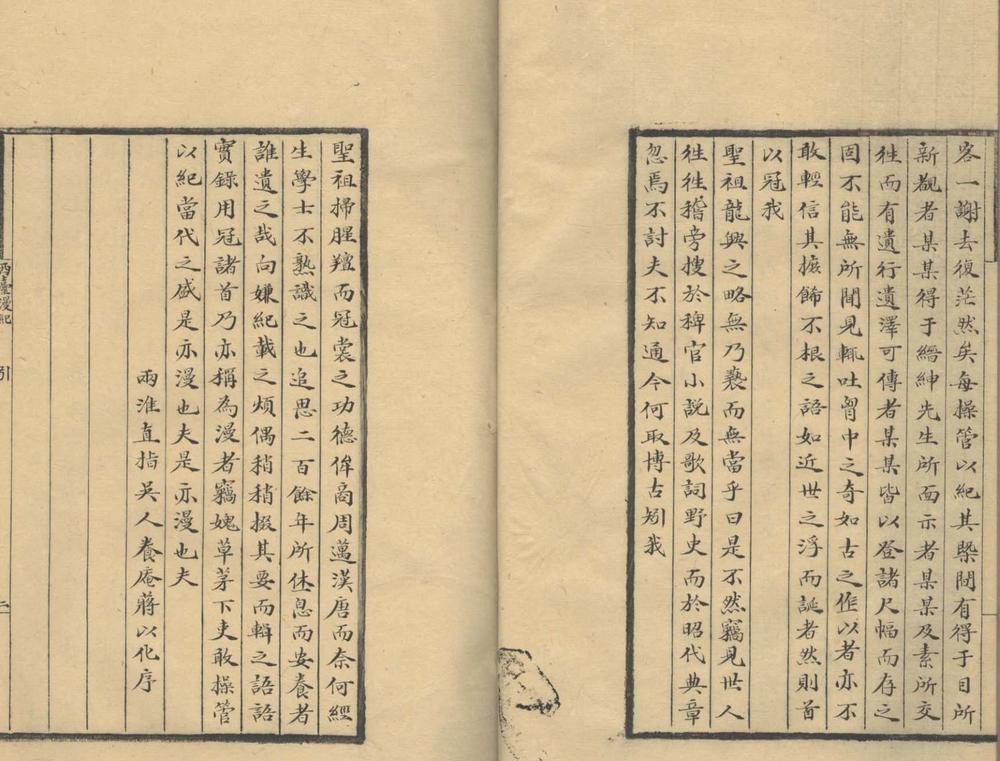 客一謝去復茫然矣每操管以紀其槩間有得于目所
新覯者某某得于縉紳先生所面示者某某及素所交
徃而有遺行遺澤可傳者某某皆以登諸尺幅而存之
固不能無所聞見輒吐胷中之奇如古之作以者亦不
敢輕信其摭餙不根之語如近世之浮而誕者然則首
以冠我
聖祖龍興之略無乃褻而無當乎曰是不然竊見世人
徃徃稽旁搜於稗官小說及歌詞野史而於昭代典章
忽焉不討夫不知通今何取博古矧我
聖祖掃腥羶而冠裳之功德侔商周邁漢唐而奈何經
生學士不熟識之也追思二百餘年所休息而安養者
誰遺之哉向嫌紀載之煩偶稍稍掇其要而輯之語語
實錄用冠諸首乃亦稱為漫者竊媿草茅下吏敢操管
以紀當代之盛是亦漫也夫是亦漫也夫
兩淮直指吳人養庵蔣以化序
西臺漫紀
引
二